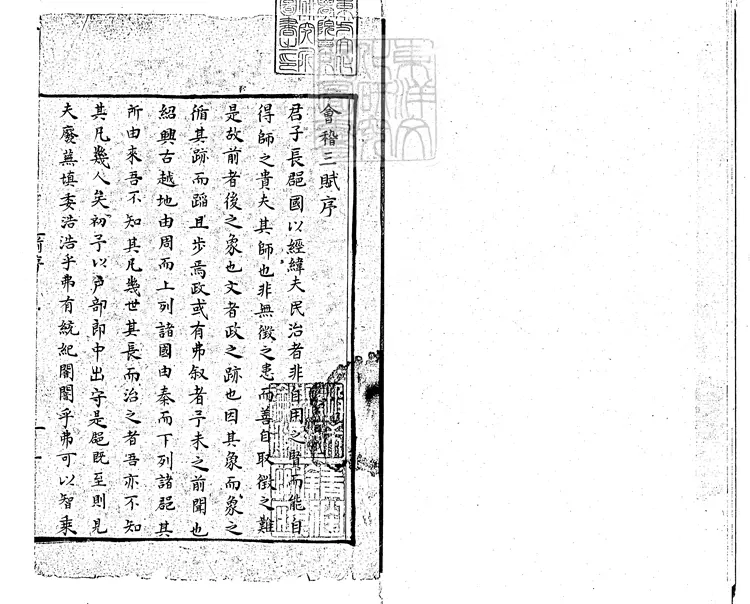 會稽三賦序
君子長郡國以經緯夫民治者非自用之賢而能自
得師之貴夫其師也非無徵之患而善自取徵之難
是故前者後之象也文者政之跡也因其象而象之
循其跡而蹈且步焉政或有弗叙者予未之前聞也
紹興古越地由周而上列諸國由秦而下列諸郡其
所由來吾不知其凡幾世其長而治之者吾亦不知
其凡幾人矣初予以戶部郎中出守是郡既至則見
夫廢蕪填委浩浩乎弗有統紀闇闇乎弗可以智乘